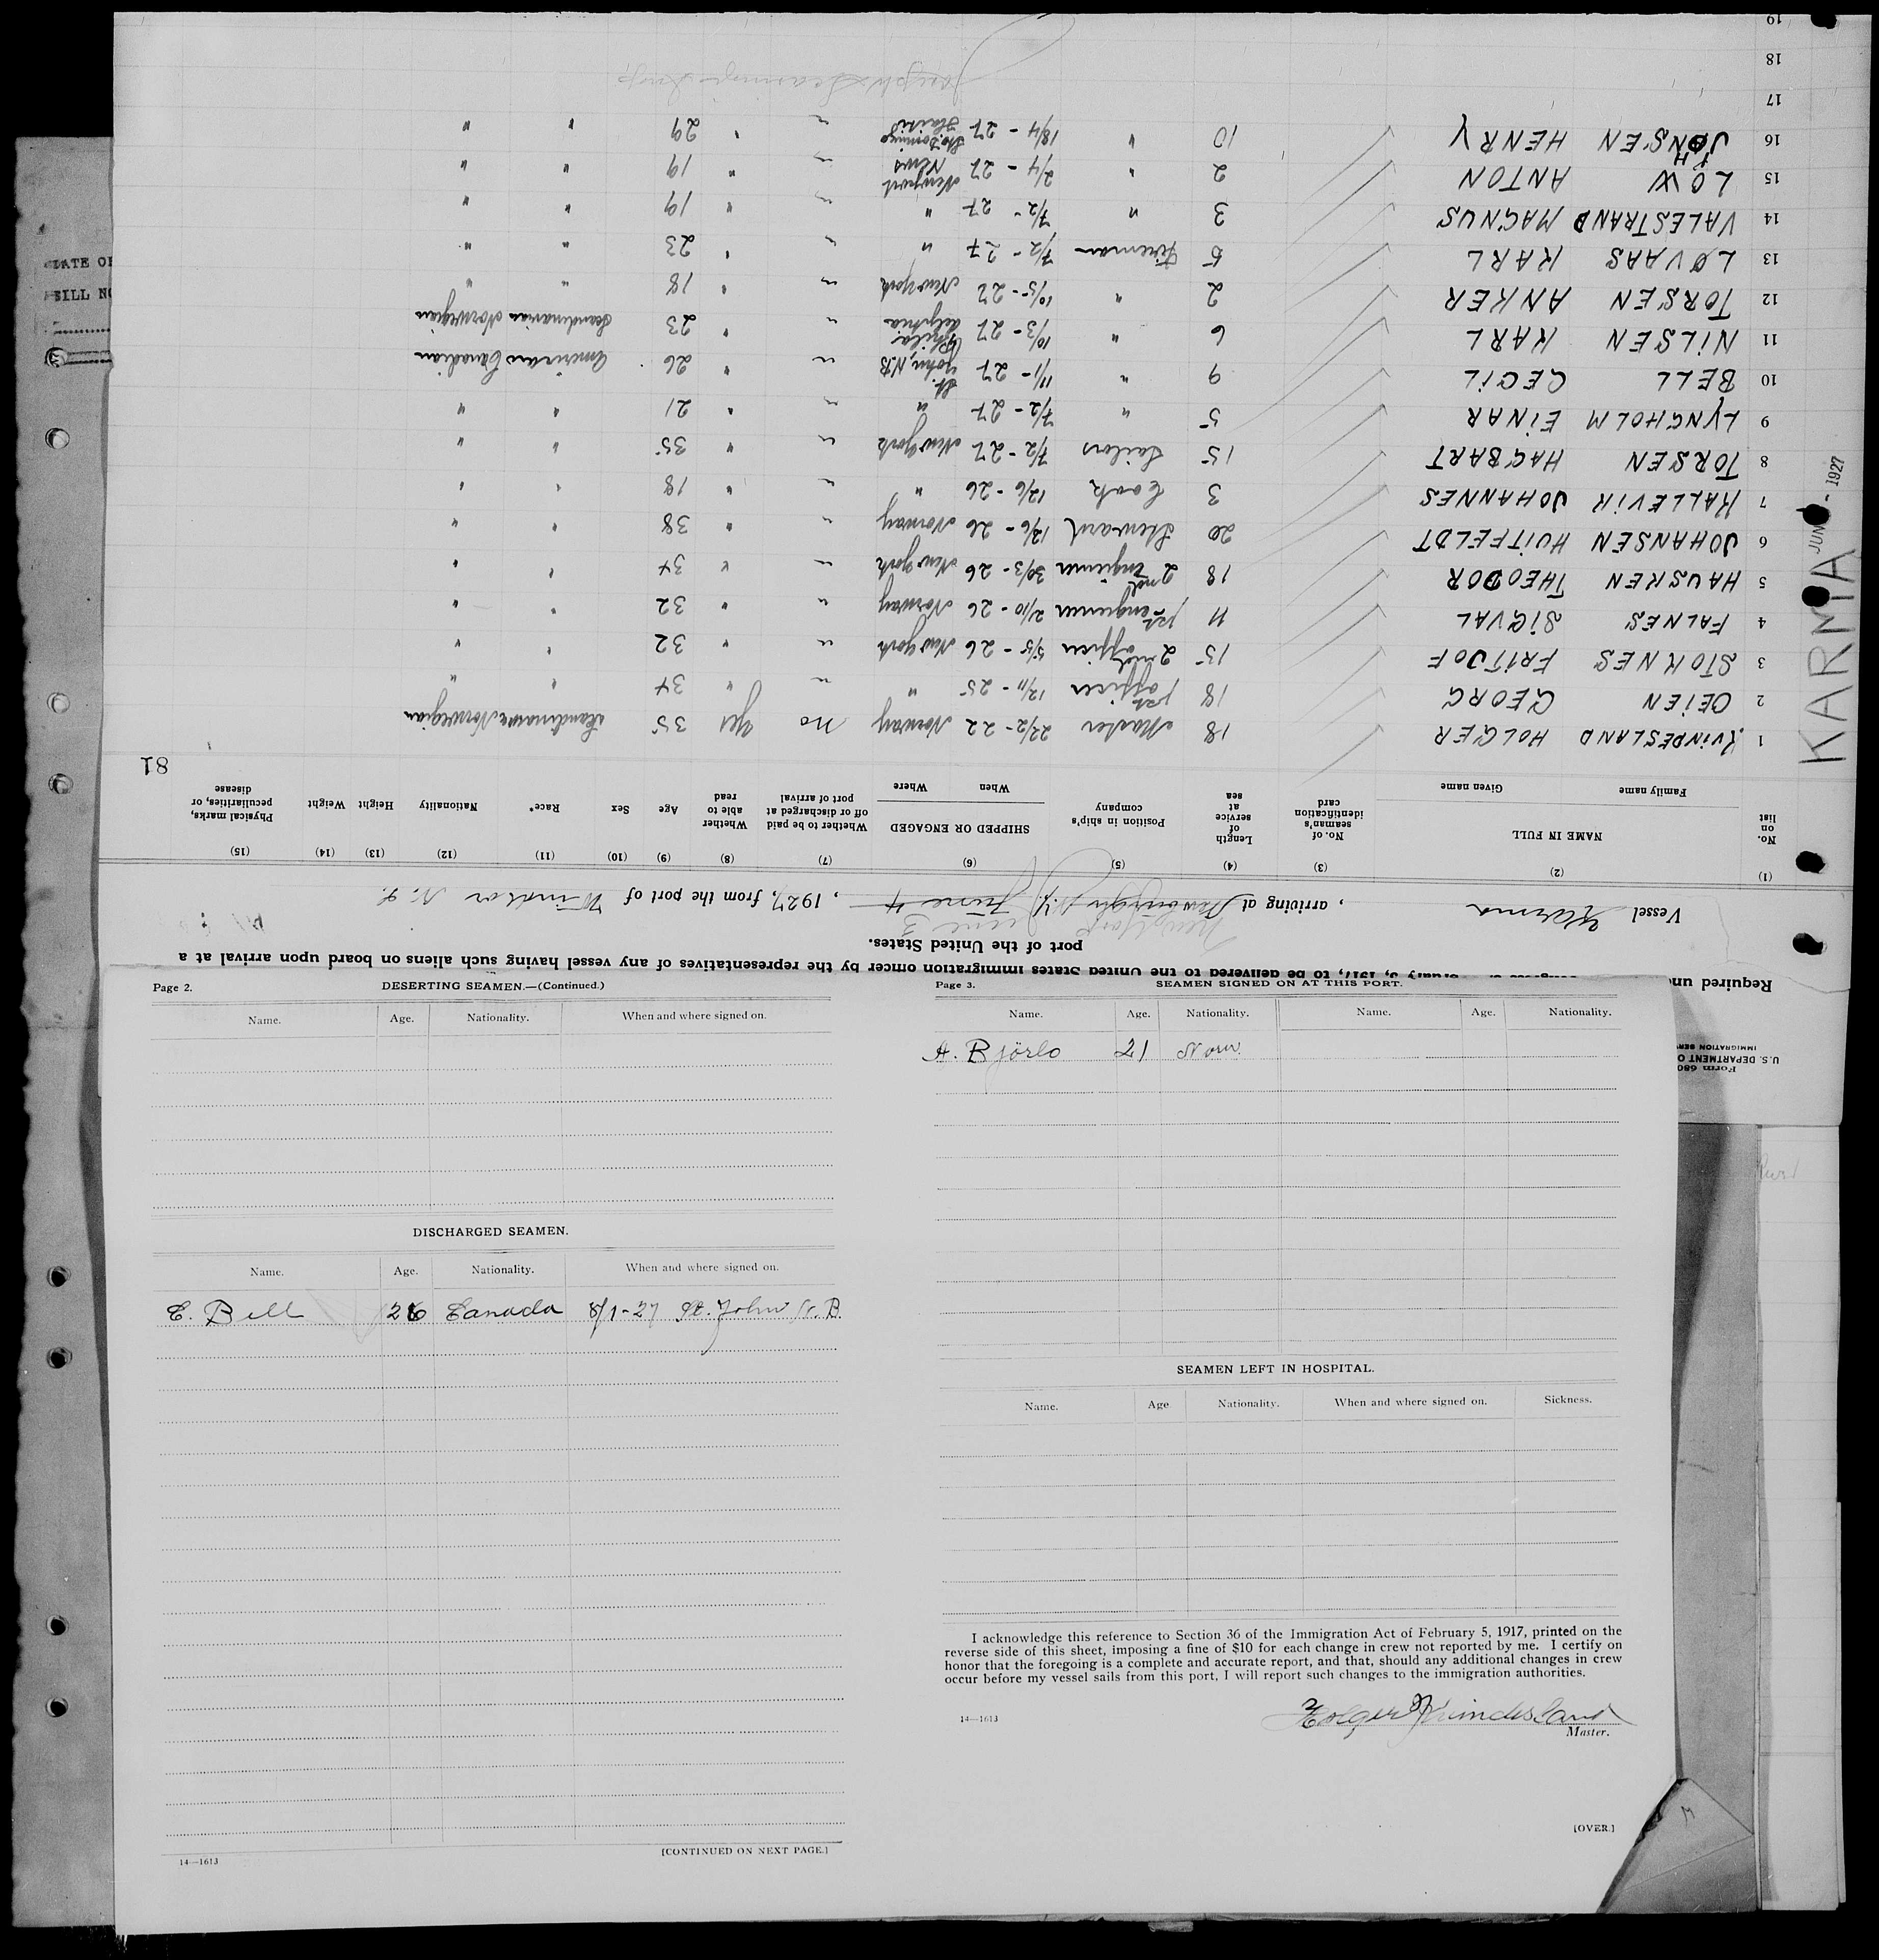 Form 680
U.S. DEPARTMENT O
IMMIGRATION SER
Required un
to be delivered to the United States immigration officer by the representatives of any vessel having such aliens on board upon arrival at a
port of the United States.
New York June 3
Vessel Karma , arriving at Newburgh N.Y. June 4 , 1927, from the port of Windsor N.S.
(1) (2) (3) (4) (5) (6) (7) (8) (9) (10) (11) (12) (13) (14) (15)
No. on list NAME IN FULL Family name Given name No. of seaman's identification card Length of service at sea Position in ship's company SHIPPED OR ENGAGED When Where Whether to be paid off or discharged at port of arrival Whether able to read Age Sex Race* Nationality Height Weight Physical marks, peculiarities, or disease
81
1 KVINDESLAND HOLGER 18 Master 22/2-22 Norway no yes 35 Norwegian
2 OEIEN GEORG 18 1st officer 12/11-25 " " " 34 " "
3 STOKNES FRITJOF 15 2nd officer 5/5-26 New York " " 32 " "
4 FALNES SIGVAL 11 1st engineer 2/10-26 Norway " " 32 " "
5 HAUSKEN THEODOR 18 2nd engineer 30/3-26 New York " " 34 " "
6 JOHANSEN HUITFELDT 20 Steward 12/6-26 Norway " " 38 " "
7 KALLEVIK JOHANNES 3 Cook 12/6-26 " " " 18 " "
8 TORSEN HAGBART 15 Sailors 7/2-27 New York " " 35 " "
9 LYNGHOLM EINAR 5 " 7/2-27 " " " 21 " "
10 BELL CECIL 9 " 11/1-27 St. John, N.B " " 26 American Canadian
11 NILSEN KARL 6 " 10/3-27 Philadelphia " " 23 Scandinavian Norwegian
12 TORSEN ANKER 2 " 10/5-27 New York " " 18 " "
13 LØVAAS KARL 5 Fireman 7/2-27 " " " 23 " "
14 VALESTRAND MAGNUS 3 " 7/2-27 " " " 19 " "
15 LOW ANTON 2 " 2/4-27 Newport News " " 19 " "
16 JOHNSEN HENRY 10 " 18/4-27 Sto. Domingo Haiti " " 29 " "
17
18
19
KARMA
JUN 1927
Page 2. DESERTING SEAMEN.—(Continued.)
Name. Age. Nationality. When and where signed on.
DISCHARGED SEAMEN.
Name. Age. Nationality. When and where signed on.
C. Bell 26 Canada 8/1-27 St. John N.B.
14—1613 [CONTINUED ON NEXT PAGE.]
Page 3. SEAMEN SIGNED ON AT THIS PORT.
Name. Age. Nationality. Name. Age. Nationality.
A. Björlo 21 Norw.
SEAMEN LEFT IN HOSPITAL.
Name. Age Nationality. When and where signed on. Sickness.
I acknowledge this reference to Section 36 of the Immigration Act of February 5, 1917, printed on the
reverse side of this sheet, imposing a fine of $10 for each change in crew not reported by me. I certify on
honor that the foregoing is a complete and accurate report, and that, should any additional changes in crew
occur before my vessel sails from this port, I will report such changes to the immigration authorities.
14—1613
Holger Kvindesland
Master.
[OVER.]
DATE OF
BILL NO